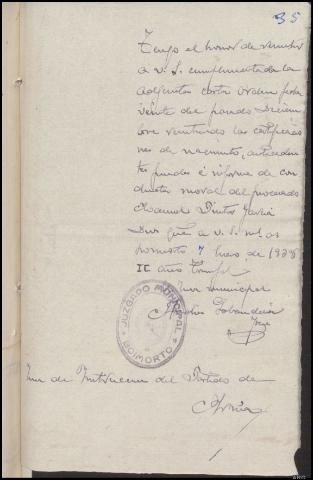 35
Tengo el honor de remitir
a V. S. cumplimentada la
adjunta carta orden fecha
veinte del pasado Diciem
bre reuniendo las certificacio
nes de nacimiento, anteceden
tes penales é informe de con
ducta moral del procesado
Manuel Pintos
Dios guíe a V. S. m. as
Boimorto 7 Enero de 1938
II año triunfal
Juez municipal
JUZGADO MUNICIPAL
BOIMORTO
Juez de Instruccion del Partido de
Arzúa